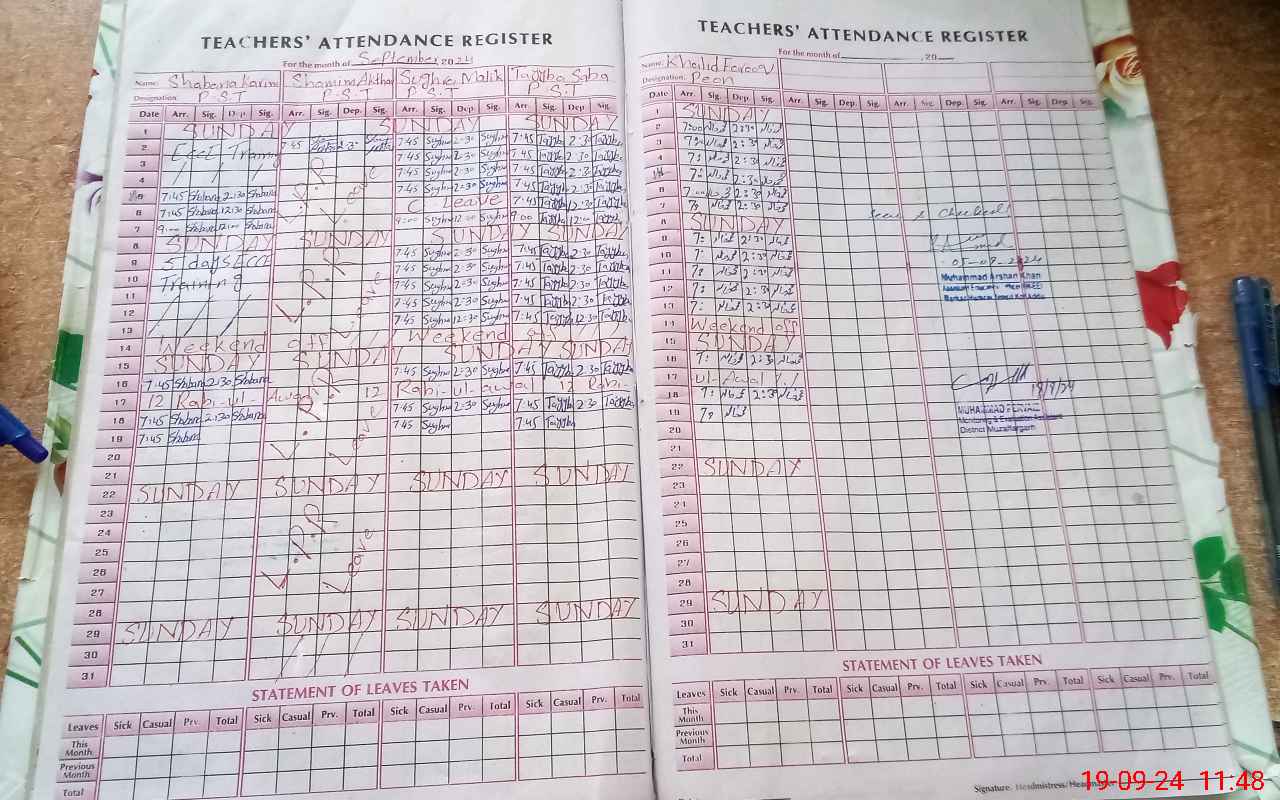 TEACHERS' ATTENDANCE REGISTER
For the month of September 2024
Name: Shabana Karim Shamim Akhtar Sughra Malik Tayyba Saba
Designation: P.S.T P.S.T P.S.T P.S.T
Date Arr. Sig. Dep. Sig. Arr. Sig. Dep. Sig. Arr. Sig. Dep. Sig. Arr. Sig. Dep. Sig.
1 SUNDAY SUNDAY SUNDAY
2 Ecce Training 7:45 7:45 Sughra 2:30 Sughra 7:45 Tayyba 2:30 Tayyba
3 7:45 Sughra 2:30 Sughra 7:45 Tayyba 2:30 Tayyba
4 7:45 Sughra 2:30 Sughra 7:45 Tayyba 2:30 Tayyba
5 7:45 Shabana 2:30 Shabana L.P.R Leave 7:45 Sughra 2:30 Sughra 7:45 Tayyba 2:30 Tayyba
6 7:45 Shabana 12:30 Shabana C. Leave 7:45 Tayyba 12:30 Tayyba
7 9:00 Shabana 12:00 Shabana 9:00 Sughra 12:00 Sughra 9:00 Tayyba 12:00 Tayyba
8 SUNDAY SUNDAY SUNDAY SUNDAY
9 5 days ECCE 7:45 Sughra 2:30 Sughra 7:45 Tayyba 2:30 Tayyba
10 Training 7:45 Sughra 2:30 Sughra 7:45 Tayyba 2:30 Tayyba
11 L.P.R Leave 7:45 Sughra 2:30 Sughra 7:45 Tayyba 2:30 Tayyba
12 7:45 Sughra 2:30 Sughra 7:45 Tayyba 2:30 Tayyba
13 7:45 Sughra 12:30 Sughra 7:45 Tayyba 12:30 Tayyba
14 Weekend off Weekend off
15 SUNDAY SUNDAY SUNDAY SUNDAY
16 7:45 Shabana 2:30 Shabana 7:45 Sughra 2:30 Sughra 7:45 Tayyba 2:30 Tayyba
17 12 Rabi-ul-Awal 12 Rabi-ul-awal 12 Rabi-
18 7:45 Shabana 2:30 Shabana L.P.R Leave 7:45 Sughra 2:30 Sughra 7:45 Tayyba 2:30 Tayyba
19 7:45 Shabana 7:45 Sughra 7:45 Tayyba
20
21
22 SUNDAY SUNDAY SUNDAY SUNDAY
23
24
25 L.P.R Leave
26
27
28
29 SUNDAY SUNDAY SUNDAY SUNDAY
30
31
STATEMENT OF LEAVES TAKEN
Leaves Sick Casual Prv. Total Sick Casual Prv. Total Sick Casual Prv. Total Sick Casual Prv. Total
This Month
Previous Month
Total
TEACHERS' ATTENDANCE REGISTER
For the month of 20
Name: Khalid Farooq
Designation: Peon
Date Arr. Sig. Dep. Sig. Arr. Sig. Dep. Sig. Arr. Sig. Dep. Sig. Arr. Sig. Dep. Sig.
1 SUNDAY
2 7:00 2:30
3 7:00 2:30
4 7: 2:30
5 7: 2:30
6 7:00 2:30
7 7:
Seen & Checked
8 SUNDAY
9 7: 2:30
05-09-2024
10 7: 2:30
11 7: 2:30
Muhammad Arshan Khan
12 7: 2:30
13 7: 2:30
14 Weekend off
15 SUNDAY
16 7: 2:30
17 ul-Awal
19/9/24
18 7: 2:30
19 7:
Monitoring & Evaluation Assistant
20
District Muzaffargarh
21
22 SUNDAY
23
24
25
26
27
28
29 SUNDAY
30
31
STATEMENT OF LEAVES TAKEN
Leaves Sick Casual Prv. Total Sick Casual Prv. Total Sick Casual Prv. Total Sick Casual Prv. Total
This Month
Previous Month
Total
Signature. Headmistress/Headmaster
19-09-24 11:48